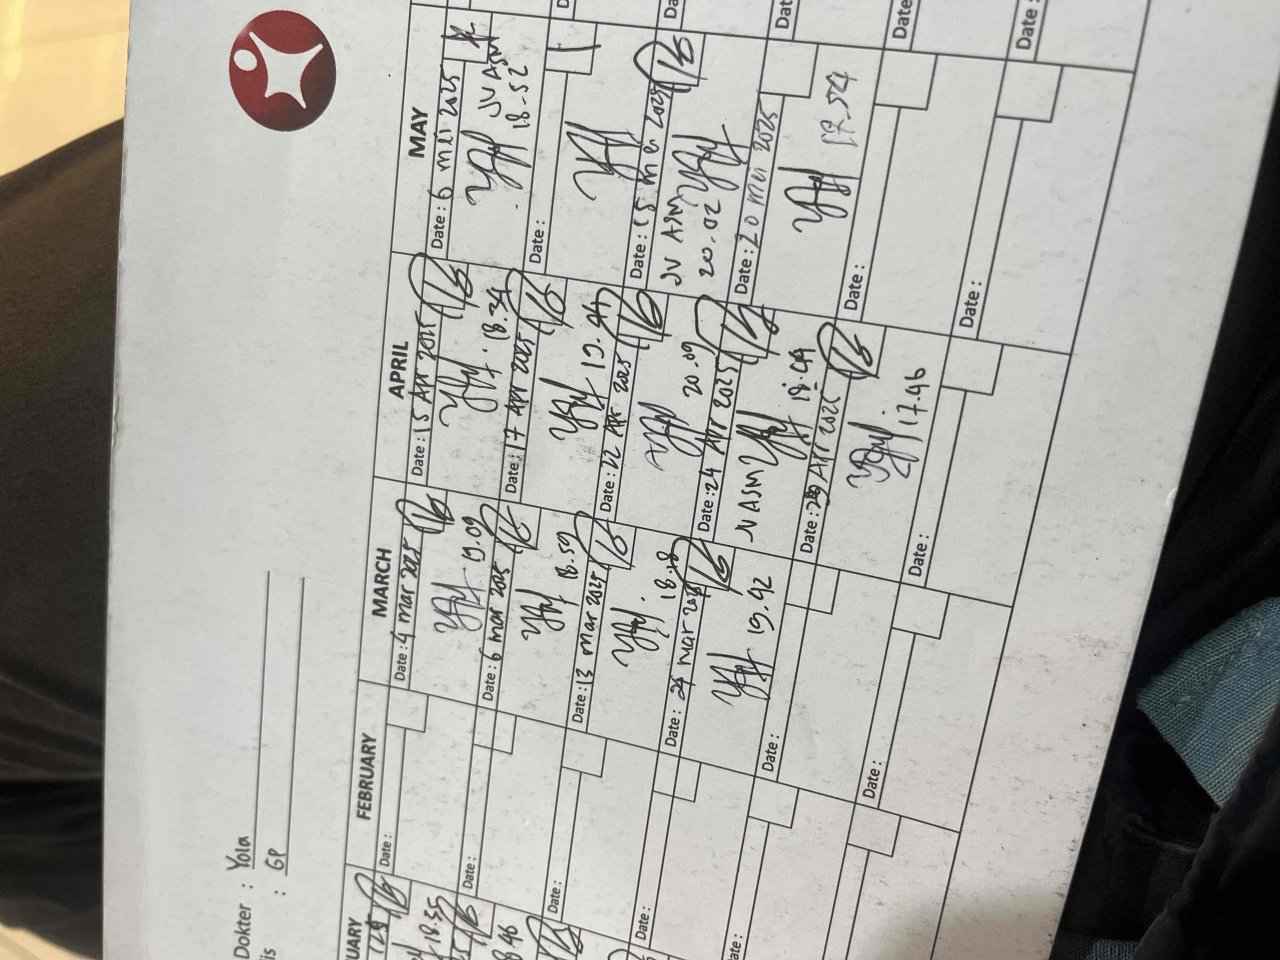 Dokter : Yola
: GP
18.55
8.46
FEBRUARY
Date :
Date :
Date :
Date :
MARCH
Date : 4 mar 2025
19.09
Date : 6 mar 2025
18.59
Date : 13 mar 2025
18.28
Date : 24 mar 2025
19.42
Date :
Date :
APRIL
Date : 15 Apr 2025
18.34
Date : 17 Apr 2025
19.44
Date : 22 Apr 2025
20.09
Date : 24 Apr 2025
18.49
Date : 29 Apr 2025
17.46
Date :
MAY
Date : 6 mei 2025
JV ASM
18-52
Date :
Date : 15 mei 2025
JV ASM
20.02
Date : 20 mei 2025
17.54
Date :
Date :
Date
Date :